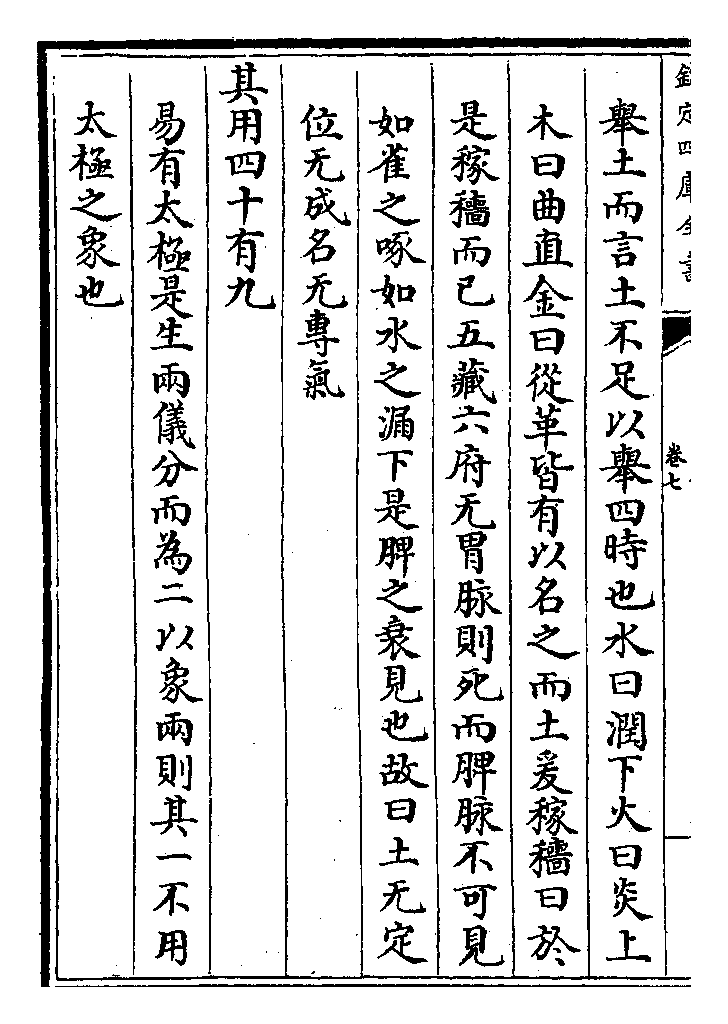 欽定四庫全書
卷七
舉土而言土不足以舉四時也水曰潤下火曰炎上
木曰曲直金曰從革皆有以名之而土爰稼穡曰於
是稼穡而已五藏六府无胃脉則死而脾脉不可見
如雀之啄如水之漏下是脾之衰見也故曰土无定
位无成名无專氣
其用四十有九
易有太極是生兩儀分而為二以象兩則其一不用
太極之象也